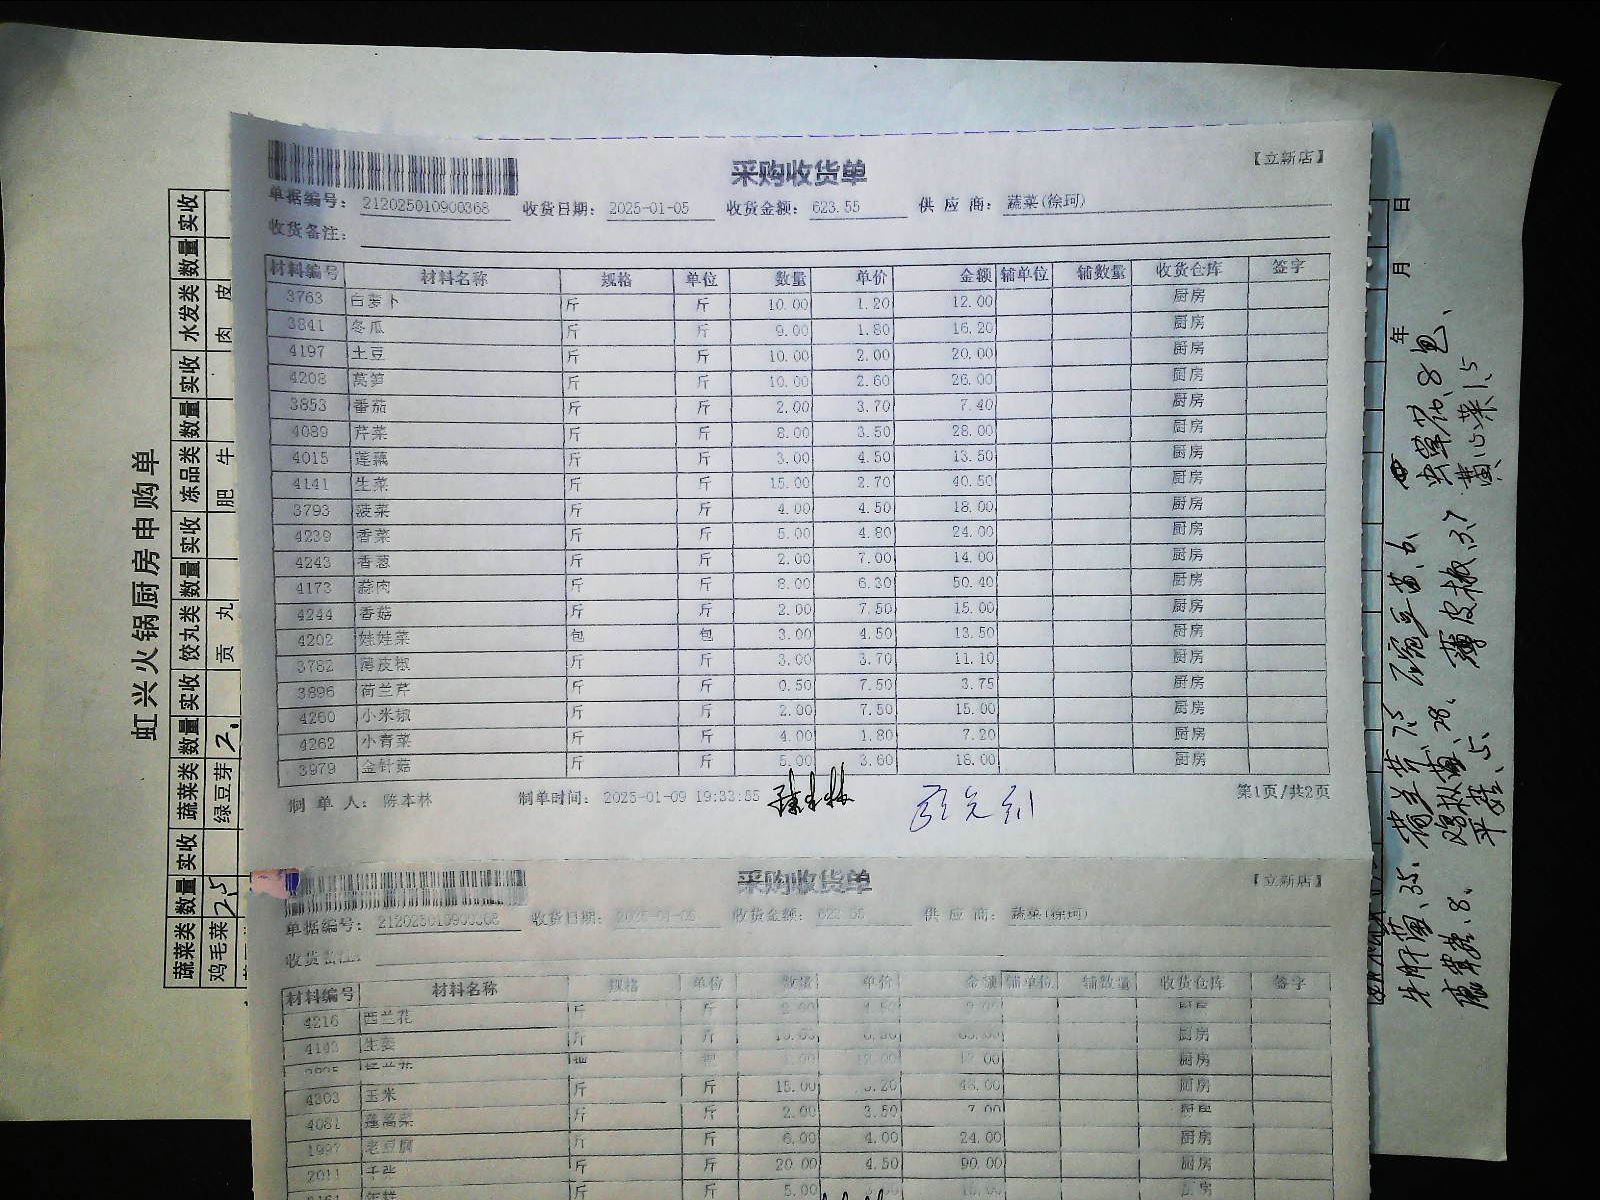 采购收货单
【立新店】
单据编号: 212025010900368 收货日期: 2025-01-05 收货金额: 623.55 供应商: 蔬菜(徐珂)
收货备注:
材料编号 材料名称 规格 单位 数量 单价 金额 辅单位 辅数量 收货仓库 签字
3763 白萝卜 斤 斤 10.00 1.20 12.00 厨房
3841 冬瓜 斤 斤 9.00 1.80 16.20 厨房
4197 土豆 斤 斤 10.00 2.00 20.00 厨房
4208 莴笋 斤 斤 10.00 2.60 26.00 厨房
3853 番茄 斤 斤 2.00 3.70 7.40 厨房
4089 芹菜 斤 斤 8.00 3.50 28.00 厨房
4015 莲藕 斤 斤 3.00 4.50 13.50 厨房
4141 生菜 斤 斤 15.00 2.70 40.50 厨房
3793 菠菜 斤 斤 4.00 4.50 18.00 厨房
4239 香菜 斤 斤 5.00 4.80 24.00 厨房
4243 香葱 斤 斤 2.00 7.00 14.00 厨房
4173 蒜肉 斤 斤 8.00 6.30 50.40 厨房
4244 香菇 斤 斤 2.00 7.50 15.00 厨房
4202 娃娃菜 包 包 3.00 4.50 13.50 厨房
3782 薄皮椒 斤 斤 3.00 3.70 11.10 厨房
3896 荷兰芹 斤 斤 0.50 7.50 3.75 厨房
4260 小米椒 斤 斤 2.00 7.50 15.00 厨房
4262 小青菜 斤 斤 4.00 1.80 7.20 厨房
3979 金针菇 斤 斤 5.00 3.60 18.00 厨房
制单人: 陈本林 制单时间: 2025-01-09 19:33:55 第1页/共2页
采购收货单
【立新店】
单据编号: 212025010900368 收货日期: 2025-01-05 收货金额: 供应商: 蔬菜(徐珂)
收货备注:
材料编号 材料名称 规格 单位 数量 单价 金额 辅单位 辅数量 收货仓库 签字
4216 西兰花 斤 斤 2.00 4.50 9.00 厨房
4143 生姜 斤 斤 厨房
厨房
4303 玉米 斤 斤 15.00 3.20 48.00 厨房
4081 蓬蒿菜 斤 斤 2.00 3.50 7.00 厨房
1997 老豆腐 斤 斤 6.00 4.00 24.00 厨房
2011 千张 斤 斤 20.00 4.50 90.00 厨房
年糕 斤 斤 5.00 厨房
虹兴火锅厨房申购单
蔬菜类 数量 实收 蔬菜类 数量 实收 饺丸类 数量 实收 冻品类 数量 实收 水发类 数量 实收
鸡毛菜 2.5 绿豆芽 2. 贡丸 肥牛 肉皮
年 月 日
荷兰芹、7.5 豌豆苗、6、 虫草花、8包、
薄皮椒、3.7 黄心菜1.5